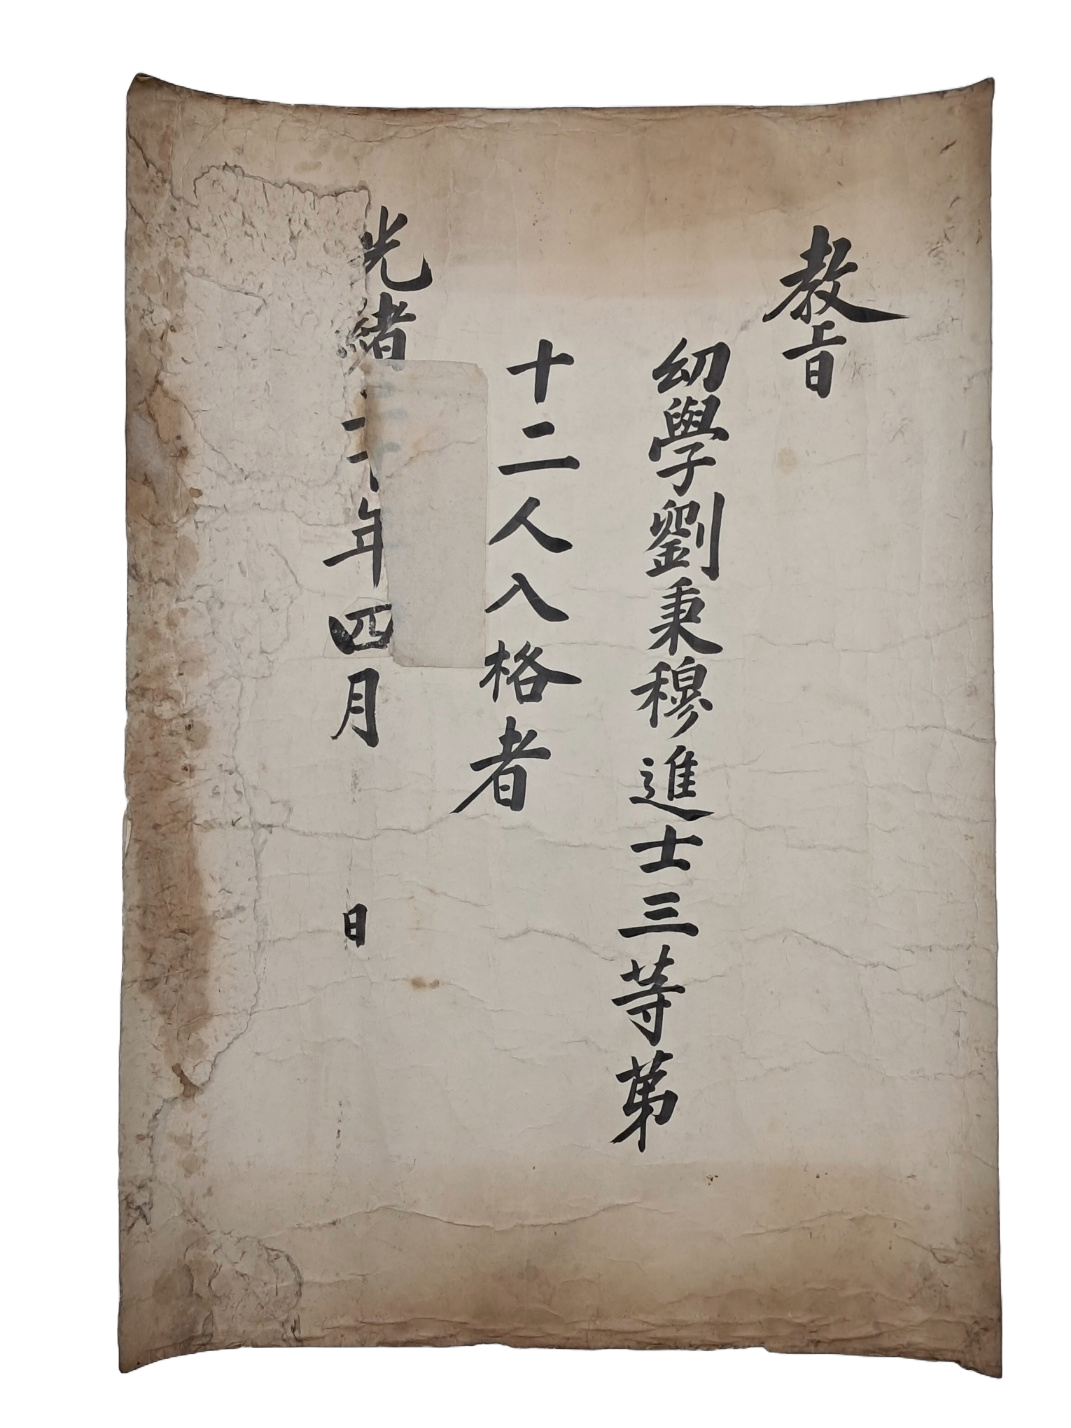 教旨
幼學劉秉穆進士三等第
十二人入格者
光緒二十年四月 日